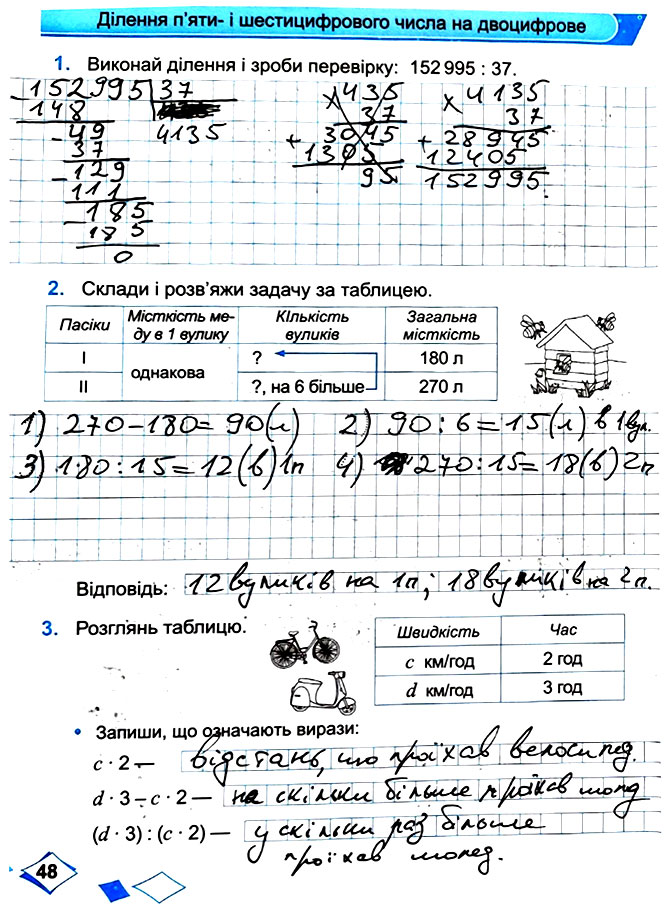 Ділення п'яти- і шестицифрового числа на двоцифрове
1. Виконай ділення і зроби перевірку: 152 995 : 37.
152995 37
148 4135
49
37
129
111
185
185
0
× 435
37
+ 3045
1305
95
× 4135
37
+ 28945
12405
152995
2. Склади і розв'яжи задачу за таблицею.
Пасіки Місткість ме-
ду в 1 вулику Кількість
вуликів Загальна
місткість
І однакова ? 180 л
ІІ ?, на 6 більше 270 л
1) 270-180=90(л) 2) 90:6=15(л) в 1 вул.
3) 180:15=12(в) 1п 4) 270:15=18(в) 2п
Відповідь: 12 вуликів на 1п; 18 вуликів на 2п.
3. Розглянь таблицю.
Швидкість Час
c км/год 2 год
d км/год 3 год
• Запиши, що означають вирази:
c · 2 — відстань, що проїхав велосипед.
d · 3 – c · 2 — на скільки більше проїхав мопед
(d · 3) : (c · 2) — у скільки раз більше
проїхав мопед.
48